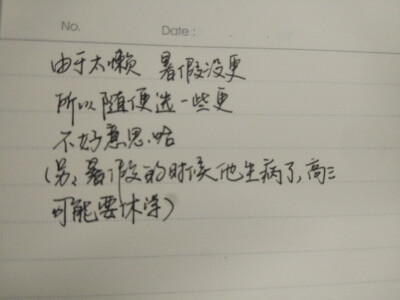 No.
Date:
由于太懒 暑假没更
所以随便选一些更
不好意思哈
(另,暑假的时候他生病了,高三
可能要休学)